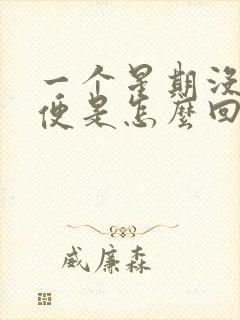 一个星期没
便是怎么回
威廉森